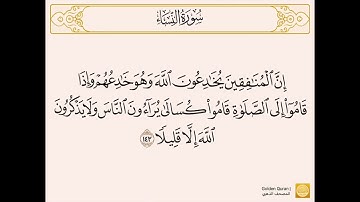 سُورَةُ النِّسَاءِ
إِنَّ ٱلْمُنَٰفِقِينَ يُخَٰدِعُونَ ٱللَّهَ وَهُوَ خَٰدِعُهُمْ وَإِذَا
قَامُوٓا۟ إِلَى ٱلصَّلَوٰةِ قَامُوا۟ كُسَالَىٰ يُرَآءُونَ ٱلنَّاسَ وَلَا يَذْكُرُونَ
ٱللَّهَ إِلَّا قَلِيلًا ١٤٢
Golden Quran |
المصحف الذهبي